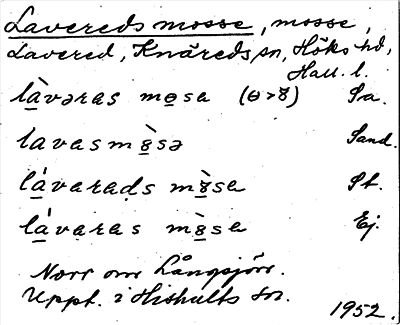 Lavereds mosse, mosse,
Lavered, Knäreds sn, Höks hd,
Hall. l.
là̱vəras mo̱sa (ɵ>8) Sa.
lavasm8̱̀sə Sand.
lá̱varaḍs m8̱̀sa St.
lá̱vaṛas m8̱̀sa Ej.
Norr om Långsjön.
Uppt. i Hishults sn.
1952.